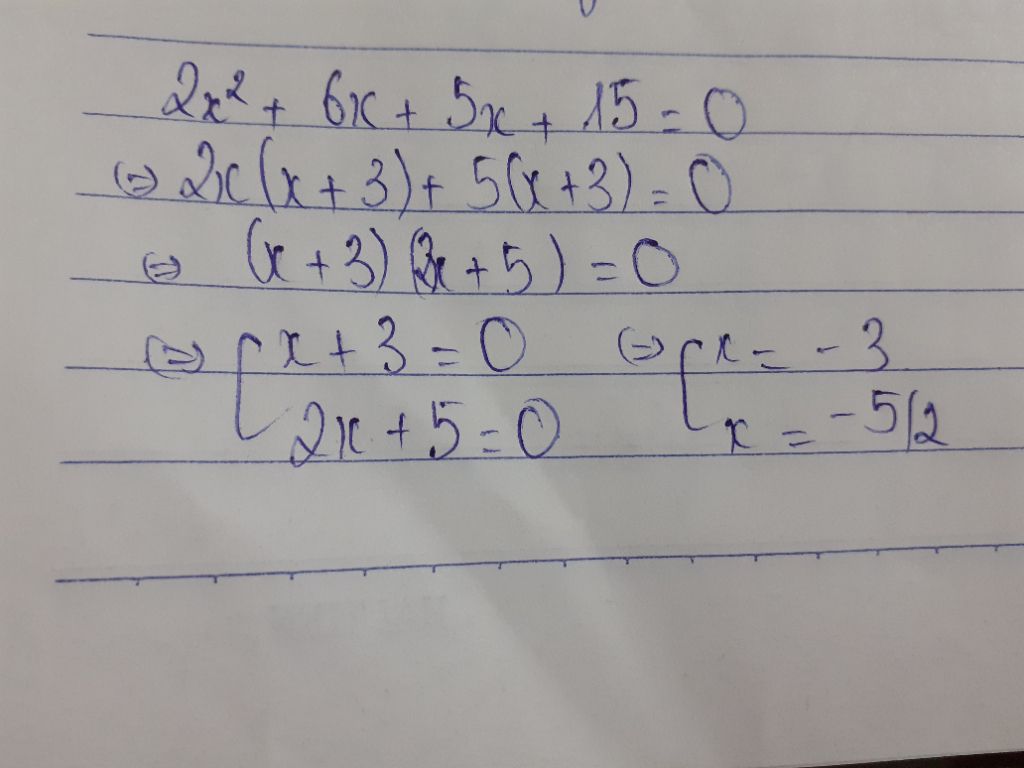 2x² + 6x + 5x + 15 = 0
⇔ 2x(x + 3) + 5(x + 3) = 0
⇔ (x + 3)(2x + 5) = 0
⇔ [ x + 3 = 0 ⇔ [ x = -3
2x + 5 = 0 x = -5/2